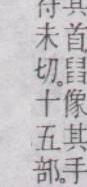 其首𦥑像其手
符未切。十五部。